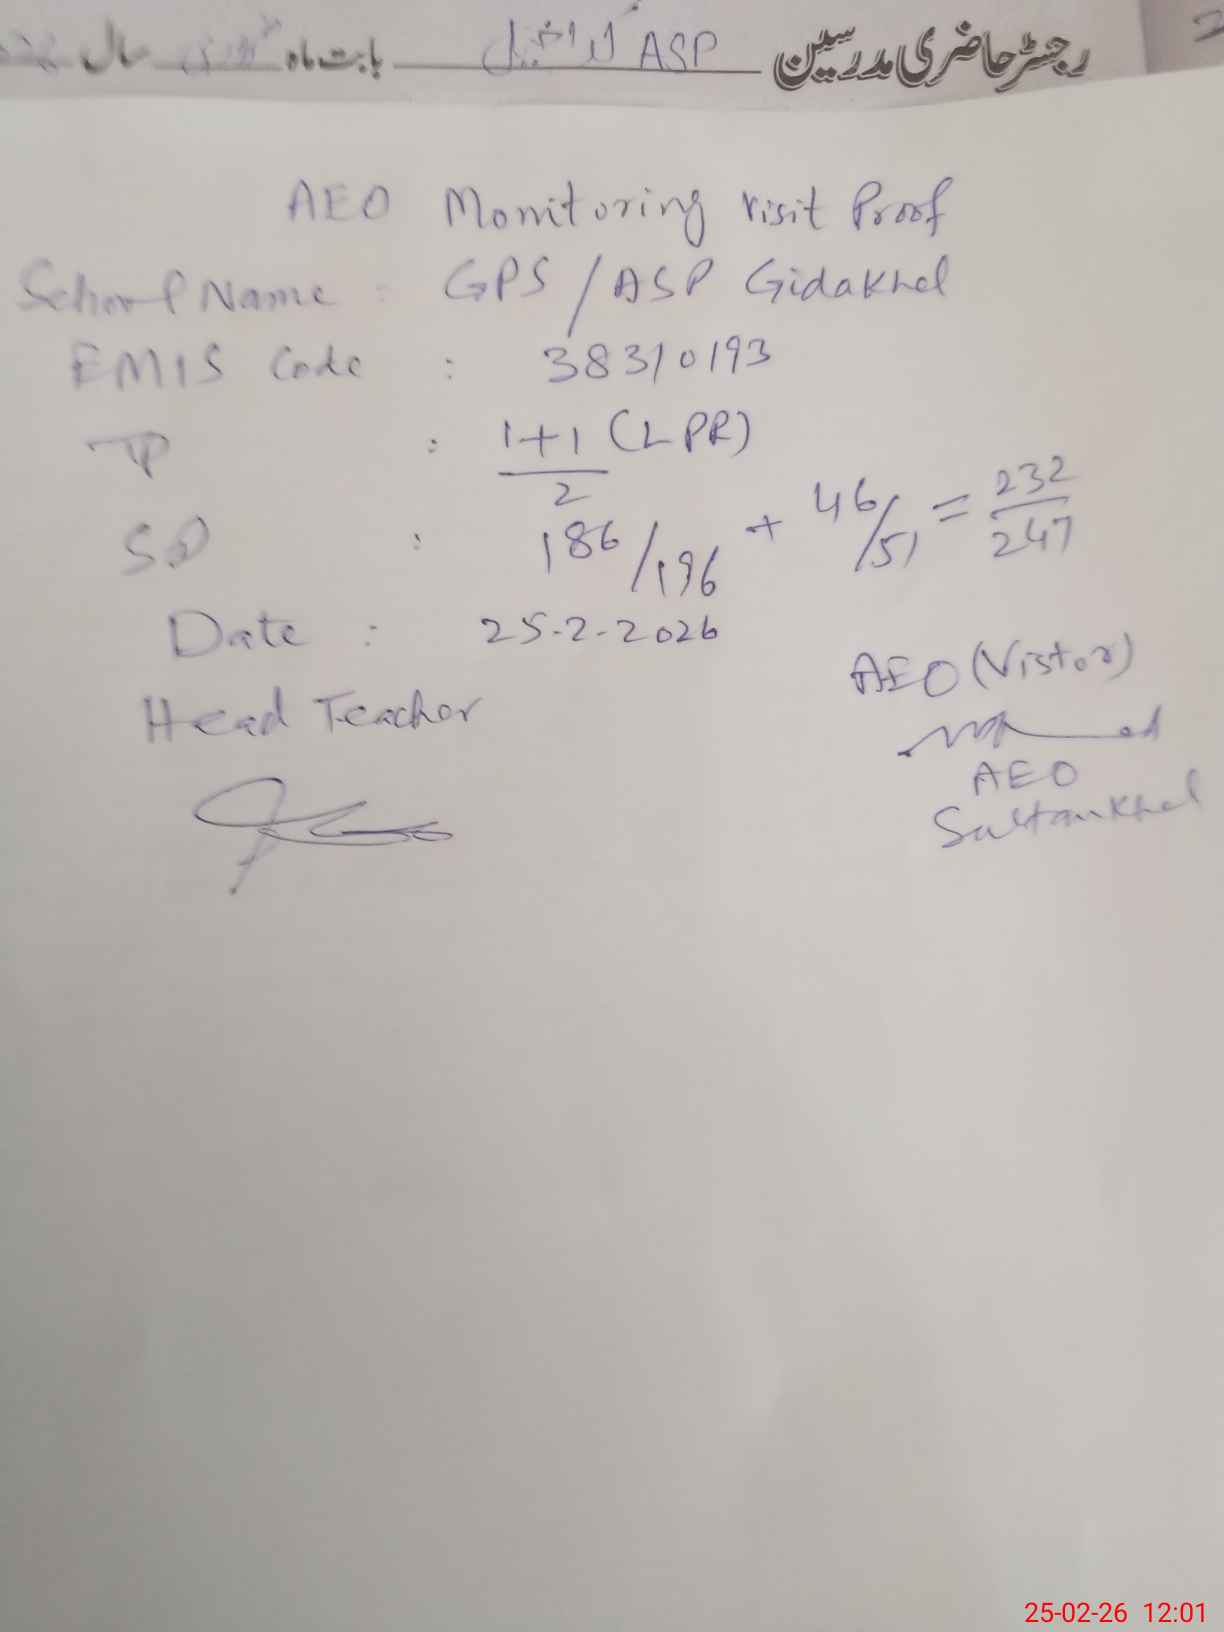 رجسٹر حاضری مدرسین ASP گداخیل بابت ماہ فروری سال
AEO Monitoring Visit Proof
School Name : GPS / ASP Gidakhel
EMIS Code : 38310193
TP : 1+1 (LPR) / 2
SP : 186/196 + 46/51 = 232/247
Date : 25-2-2026
AEO (Vistor)
Head Teacher
AEO
Sultankhel
25-02-26 12:01